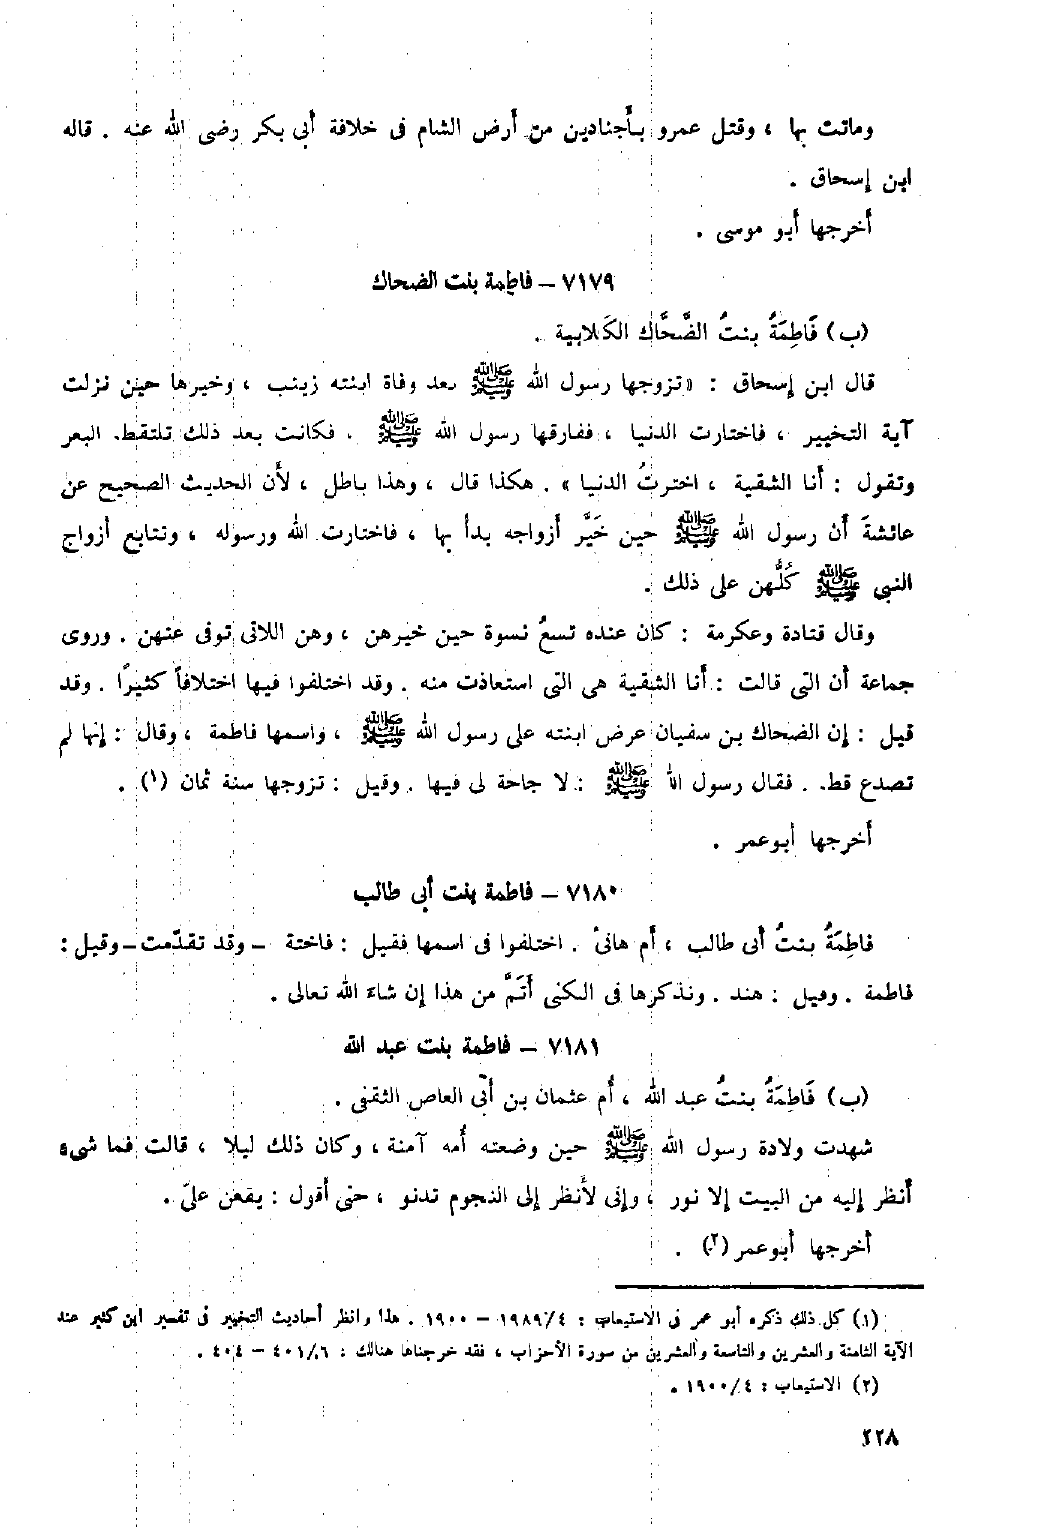 وماتت بها ، وقتل عمرو بأجنادين من أرض الشام فى خلافة أبى بكر رضى الله عنه . قاله
ابن إسحاق .
أخرجها أبو موسى .
٧١٧٩ – فاطمة بنت الضحاك
(ب) فَاطِمَةُ بنتُ الضَّحَّاك الكَلابية .
قال ابن إسحاق : «تزوجها رسول الله ﷺ بعد وفاة ابنته زينب ، وخيرها حين نزلت
آية التخيير ، فاختارت الدنيا ، ففارقها رسول الله ﷺ . فكانت بعد ذلك تلتقط البعر
وتقول : أنا الشقية ، اخترتُ الدنيا » . هكذا قال ، وهذا باطل ، لأن الحديث الصحيح عن
عائشةَ أن رسول الله ﷺ حين خَيَّر أزواجه بدأ بها ، فاختارت الله ورسوله ، وتتابع أزواج
النبى ﷺ كُلُّهن على ذلك .
وقال قتادة وعكرمة : كان عنده تسعُ نسوة حين خيرهن ، وهن اللاتى توفى عنهن . وروى
جماعة أن التى قالت : أنا الشقية هى التى استعاذت منه . وقد اختلفوا فيها اختلافاً كثيرًا . وقد
قيل : إن الضحاك بن سفيان عرض ابنته على رسول الله ﷺ ، واسمها فاطمة ، وقال : إنها لم
تصدع قط . فقال رسول الله ﷺ : لا حاجة لى فيها . وقيل : تزوجها سنة ثمان (١) .
أخرجها أبو عمر .
٧١٨٠ – فاطمة بنت أبى طالب
فاطِمَةُ بنتُ أبى طالب ، أم هانئ . اختلفوا فى اسمها فقيل : فاختة – وقد تقدّمت – وقيل :
فاطمة . وقيل : هند . ونذكرها فى الكنى أتَمَّ من هذا إن شاءَ الله تعالى .
٧١٨١ – فاطمة بنت عبد الله
(ب) فَاطِمَةُ بنتُ عبد الله ، أُم عثمان بن أبى العاص الثقفى .
شهدت ولادة رسول الله ﷺ حين وضعته أمه آمنة ، وكان ذلك ليلا ، قالت فما شىء
أنظر إليه من البيت إلا نور ، وإنى لأنظر إلى النجوم تدنو ، حتى أقول : يقعن علىّ .
أخرجها أبو عمر (٢) .
(١) كل ذلك ذكره أبو عمر فى الاستيعاب : ١٩٨٩/٤ – ١٩٠٠ . هذا وانظر أحاديث التخيير فى تفسير ابن كثير عند
الآية الثامنة والعشرين والتاسعة والعشرين من سورة الأحزاب ، فقد خرجناها هنالك : ٤٠١/٦ – ٤٠٤ .
(٢) الاستيعاب : ١٩٠٠/٤ .
٢٢٨